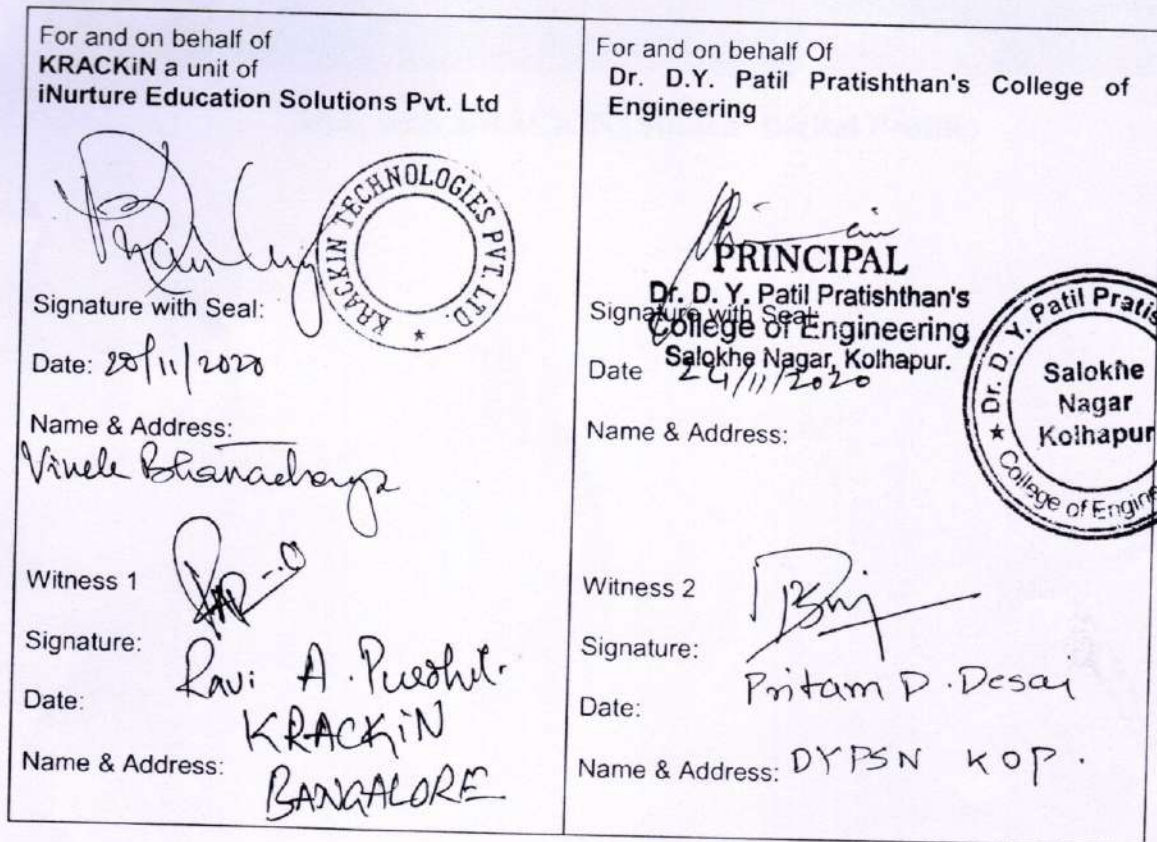 For and on behalf of
KRACKiN a unit of
iNurture Education Solutions Pvt. Ltd
KRACKIN TECHNOLOGIES PVT. LTD.
Signature with Seal:
Date: 20/11/2020
Name & Address:
Witness 1
Signature:
Ravi A. Purohit.
Date:
KRACKiN
Name & Address:
BANGALORE
For and on behalf Of
Dr. D.Y. Patil Pratishthan's College of
Engineering
PRINCIPAL
Dr. D. Y. Patil Pratishthan's
Signature with Seal:
College of Engineering
Salokhe Nagar, Kolhapur.
Date 24/11/2020
Name & Address:
Dr. D. Y. Patil Pratis
Salokhe
Nagar
Kolhapur
College of Engine
Witness 2
Signature:
Pritam P. Desai
Date:
Name & Address: DYPSN KOP.